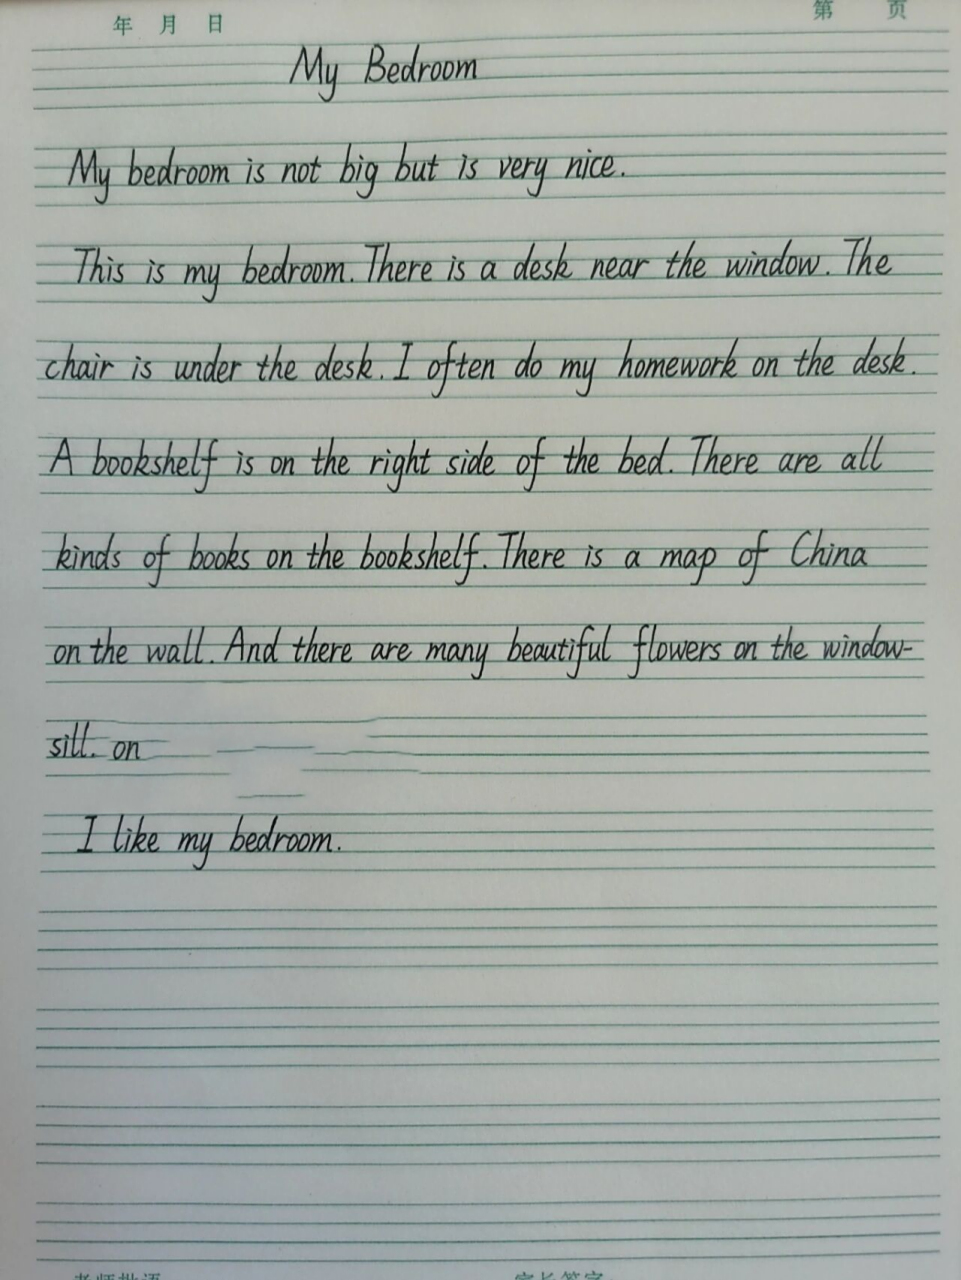 年 月 日 第 页
My Bedroom
My bedroom is not big but is very nice.
This is my bedroom. There is a desk near the window. The
chair is under the desk. I often do my homework on the desk.
A bookshelf is on the right side of the bed. There are all
kinds of books on the bookshelf. There is a map of China
on the wall. And there are many beautiful flowers on the window-
sill. on
I like my bedroom.
老师批语 家长签字